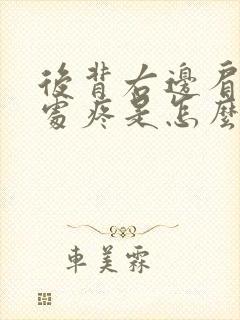 後背右邊肩
處疼是怎麼
車美霖